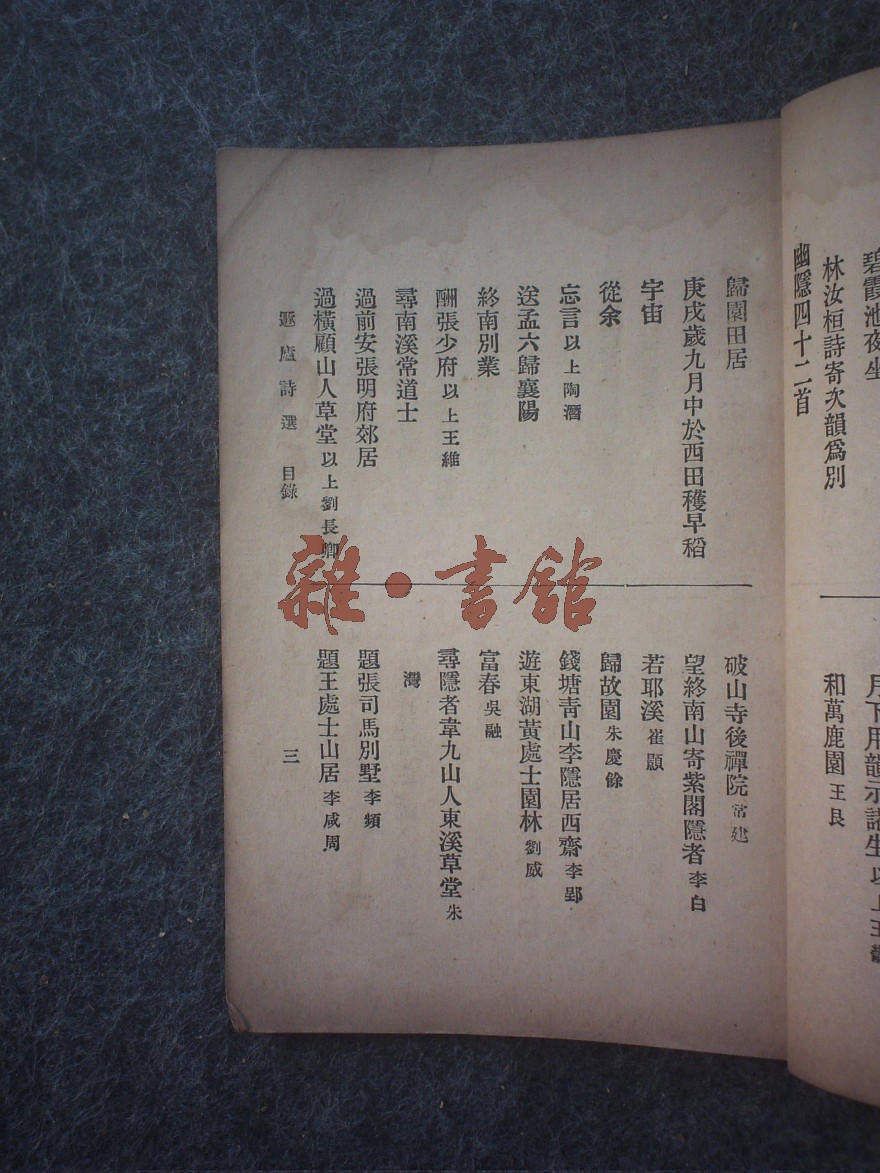 碧霞池夜坐
林汝桓詩寄次韻爲別
幽隱四十二首
月下用韻示諸生以上王
和萬鹿園 王艮
歸園田居
庚戌歲九月中於西田穫早稻
宇宙
從余
忘言 以上陶潛
送孟六歸襄陽
終南別業
酬張少府 以上王維
尋南溪常道士
過前安張明府郊居
過橫顧山人草堂 以上劉長卿
破山寺後禪院 常建
望終南山寄紫閣隱者 李白
若耶溪 崔顥
歸故園 朱慶餘
錢塘靑山李隱居西齋 李郢
遊東湖黃處士園林 劉威
富春 吳融
尋隱者韋九山人東溪草堂 朱
灣
題張司馬別墅 李頻
題王處士山居 李咸周
遯廬詩選 目錄
三
雜·書館